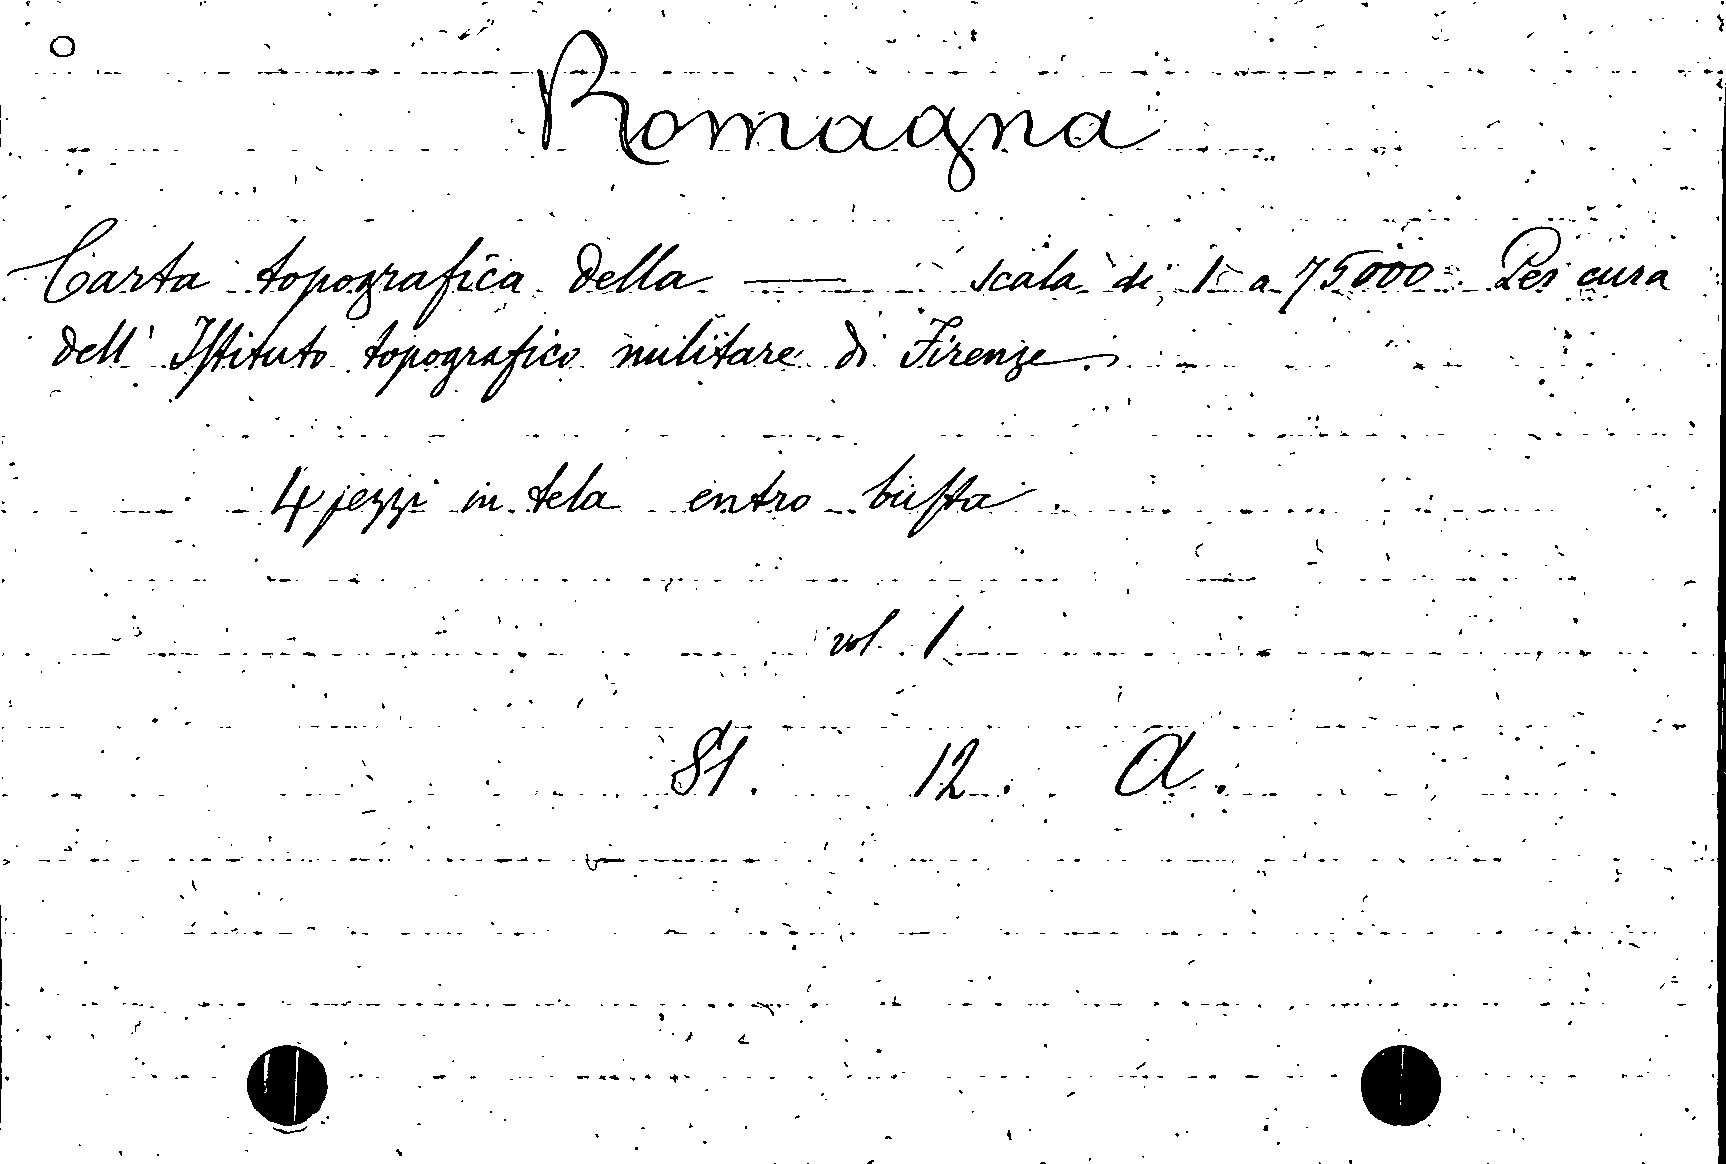 Romagna
Carta topografica della — scala di 1 a 75000. Per cura
dell' Istituto topografico militare di Firenze.
4 pezzi in tela entro busta
vol. 1
St. 12. A.